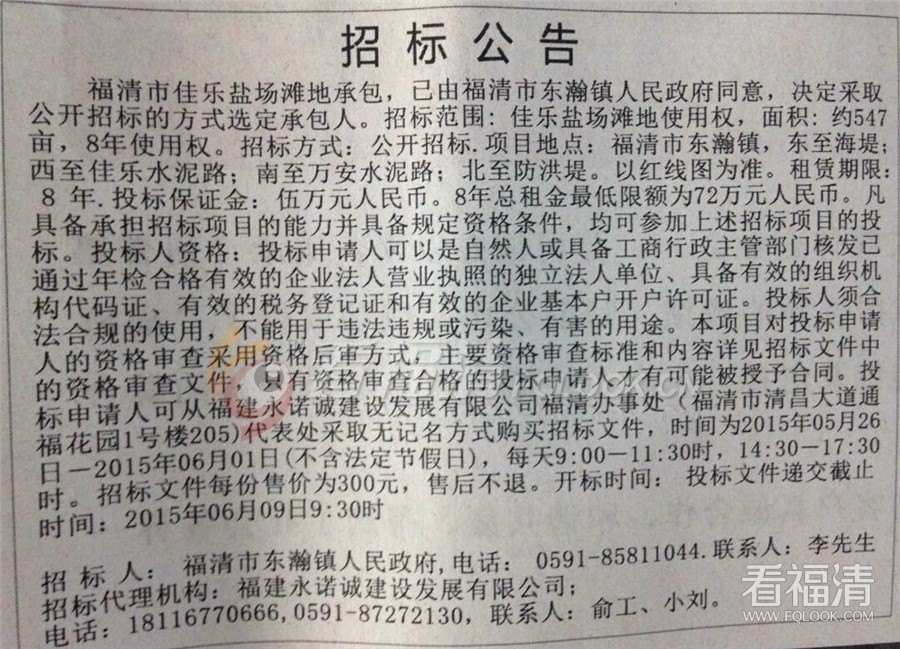 招标公告
福清市佳乐盐场滩地承包，已由福清市东瀚镇人民政府同意，决定采取
公开招标的方式选定承包人。招标范围：佳乐盐场滩地使用权，面积：约547
亩，8年使用权。招标方式：公开招标.项目地点：福清市东瀚镇，东至海堤；
西至佳乐水泥路；南至万安水泥路；北至防洪堤。以红线图为准。租赁期限：
8 年.投标保证金：伍万元人民币。8年总租金最低限额为72万元人民币。凡
具备承担招标项目的能力并具备规定资格条件，均可参加上述招标项目的投
标。投标人资格：投标申请人可以是自然人或具备工商行政主管部门核发已
通过年检合格有效的企业法人营业执照的独立法人单位、具备有效的组织机
构代码证、有效的税务登记证和有效的企业基本户开户许可证。投标人须合
法合规的使用，不能用于违法违规或污染、有害的用途。本项目对投标申请
人的资格审查采用资格后审方式，主要资格审查标准和内容详见招标文件中
的资格审查文件，只有资格审查合格的投标申请人才有可能被授予合同。投
标申请人可从福建永诺诚建设发展有限公司福清办事处（福清市清昌大道通
福花园1号楼205)代表处采取无记名方式购买招标文件，时间为2015年05月26
日－2015年06月01日(不含法定节假日)，每天9:00－11:30时，14:30-17:30
时。招标文件每份售价为300元，售后不退。开标时间： 投标文件递交截止
时间：2015年06月09日9:30时
招 标 人： 福清市东瀚镇人民政府,电话： 0591-85811044.联系人：李先生
招标代理机构：福建永诺诚建设发展有限公司；
电话：18116770666,0591-87272130，联系人：俞工、小刘。
看福清
WWW.FQLOOK.COM